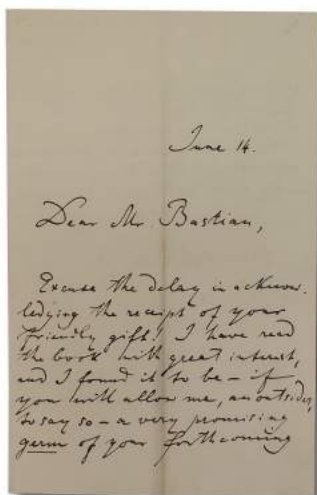 June 14.
Dear Mr Bastian,
Excuse the delay in acknow-
ledging the receipt of your
friendly gift! I have read
the book with great interest,
and I found it to be – if
you will allow me, an outsider,
to say so – a very promising
germ of your forthcoming